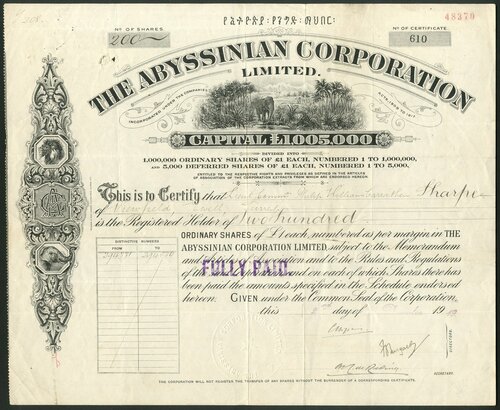 የኢትዮጵያ፡የንግድ፡ማህበር፡
48370
No OF SHARES
200
No OF CERTIFICATE
610
THE ABYSSINIAN CORPORATION
LIMITED.
INCORPORATED UNDER THE COMPANIES
ACTS, 1908 TO 1917.
CAPITAL £1,005,000
DIVIDED INTO
1,000,000 ORDINARY SHARES OF £1 EACH, NUMBERED 1 TO 1,000,000,
AND 5,000 DEFERRED SHARES OF £1 EACH, NUMBERED 1 TO 5,000,
ENTITLED TO THE RESPECTIVE RIGHTS AND PRIVILEGES AS DEFINED IN THE ARTICLES
OF ASSOCIATION OF THE CORPORATION EXTRACTS FROM WHICH ARE ENDORSED HEREON.
This is to Certify that Sharpe
of
is the Registered Holder of Two Hundred
DISTINCTIVE NUMBERS
FROM TO
ORDINARY SHARES OF £1 each, numbered as per margin, in THE
ABYSSINIAN CORPORATION LIMITED, subject to the Memorandum
and to the Rules and Regulations
FULLY PAID.
and on each of which Shares there has
been paid the amounts specified in the Schedule endorsed
hereon. GIVEN under the Common Seal of the Corporation,
this day of 19
DIRECTORS.
SECRETARY.
THE CORPORATION WILL NOT REGISTER THE TRANSFER OF ANY SHARES WITHOUT THE SURRENDER OF A CORRESPONDING CERTIFICATE.